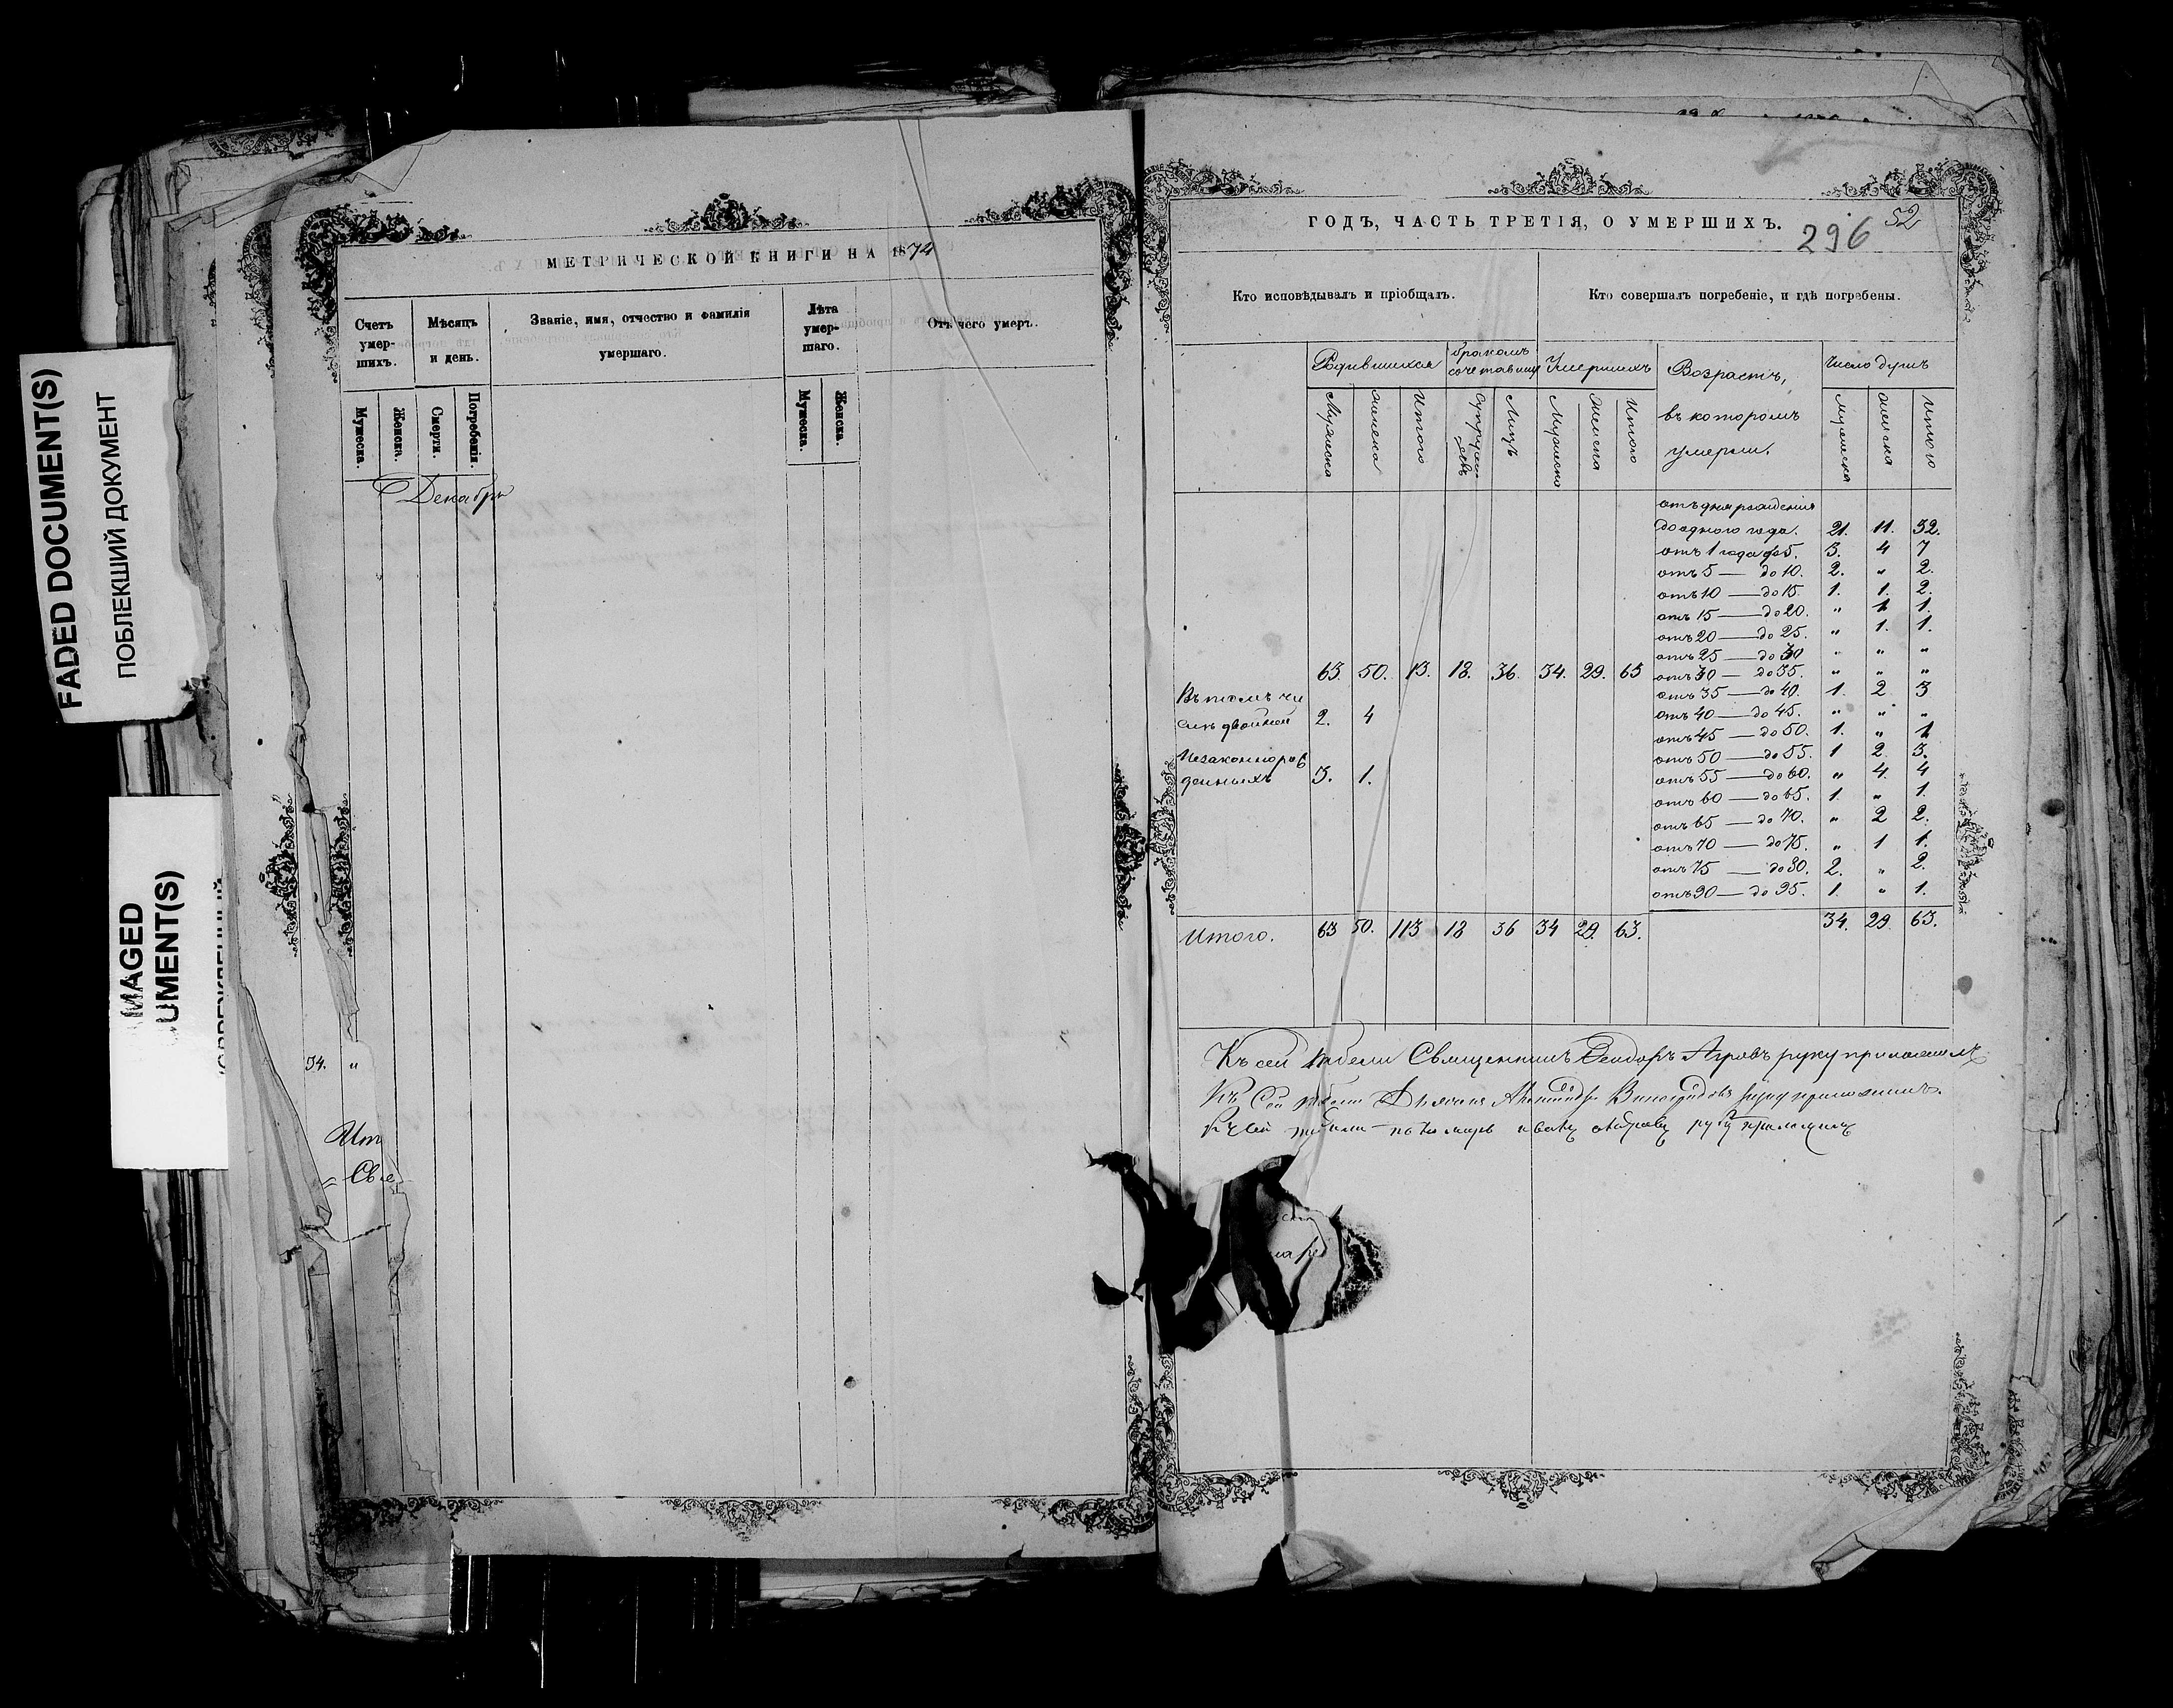 FADED DOCUMENT(S)
ПОБЛЕКШИЙ ДОКУМЕНТ
MAGED
UMENT(S)
МЕТРИЧЕСКОЙ КНИГИ НА 1874
Счетъ умер-шихъ.
Мѣсяцъ и день.
Званіе, имя, отчество и фамилія
умершаго.
Лѣта умер-шаго.
Отъ чего умеръ.
Мужеска.
Женска.
Смерти.
Погребенія.
Мужеска.
Женска.
Декабрь
34. "
Ит
Све
ГОДЪ, ЧАСТЬ ТРЕТІЯ, О УМЕРШИХЪ.
296
52
Кто исповѣдывалъ и пріобщалъ.
Кто совершалъ погребеніе, и гдѣ погребены.
Родившихся
бракомъ
Умершихъ
Возрастъ,
въ которомъ
умерли.
Число душъ
Мужеска
Женска
Итого
Супружествъ
Лицъ
Мужеска
Женска
Итого
Мужеска
Женска
Итого
отъ дня рожденія
до одного года. 21. 11. 32.
отъ 1 года до 5. 3. 4 7
отъ 5 — до 10. 2. " 2.
отъ 10 — до 15. 1. 1. 2.
отъ 15 — до 20. " 1 1.
отъ 20 — до 25. " 1. 1.
отъ 25 — до 30 " " "
63. 50. 113. 18. 36. 34. 29. 63
отъ 30 — до 35. " " "
отъ 35 — до 40. 1. 2. 3
Въ томъ чи
слѣ двойней 2. 4
отъ 40 — до 45. " " "
отъ 45 — до 50. 1. " 1
отъ 50 — до 55. 1 2. 3.
Незаконнорож
денныхъ 3. 1.
отъ 55 — до 60. " 4. 4
отъ 60 — до 65. 1. " 1.
отъ 65 — до 70. " 2 2.
отъ 70 — до 75. " 1 1.
отъ 75 — до 80. 2. " 2.
отъ 90 — до 95. 1. " 1.
Итого. 63 50. 113 18 36 34 29. 63.
34. 29. 63.
Къ сей табели Священникъ Феодоръ руку приложилъ
Къ Сей табели Виноградовъ руку приложилъ.
Къ сей табели пономарь руку приложилъ